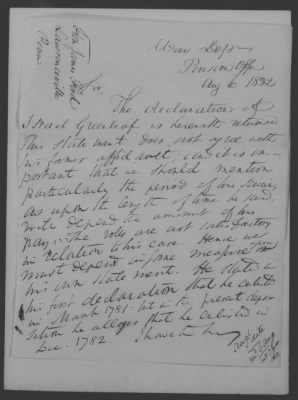 War Dept
Pension Office
Aug 6 1832
Hon James Ford
Lawrenceville
Penn
Sir,
The declaration of
Israel Greenleaf is herewith returned
This statement does not agree with
his former affidavit, and it is im-
portant that he should mention
particularly the period of his service,
as upon the length of time he served,
will depend the amount of his
pay. The rolls are not satisfactory
in relation to his case. Hence we
must depend in some measure upon
his own statement. He stated in
his first declaration that he enlisted
in March 1781. but in the present depo-
sition he alleges that he enlisted in
Dec. 1782
I have the